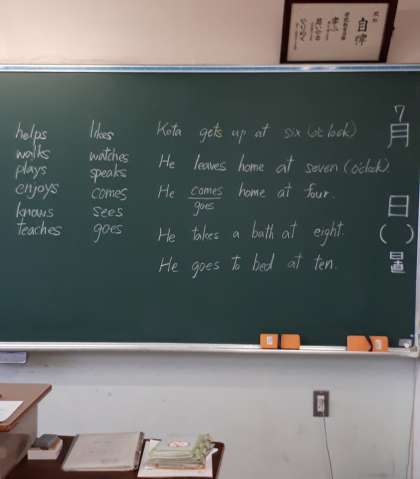 自律
helps
walks
plays
enjoys
knows
teaches
likes
watches
speaks
comes
sees
goes
Kota gets up at six (o'clock)
He leaves home at seven (o'clock)
He comes home at four.
goes
He takes a bath at eight.
He goes to bed at ten.
7
月
日
( )